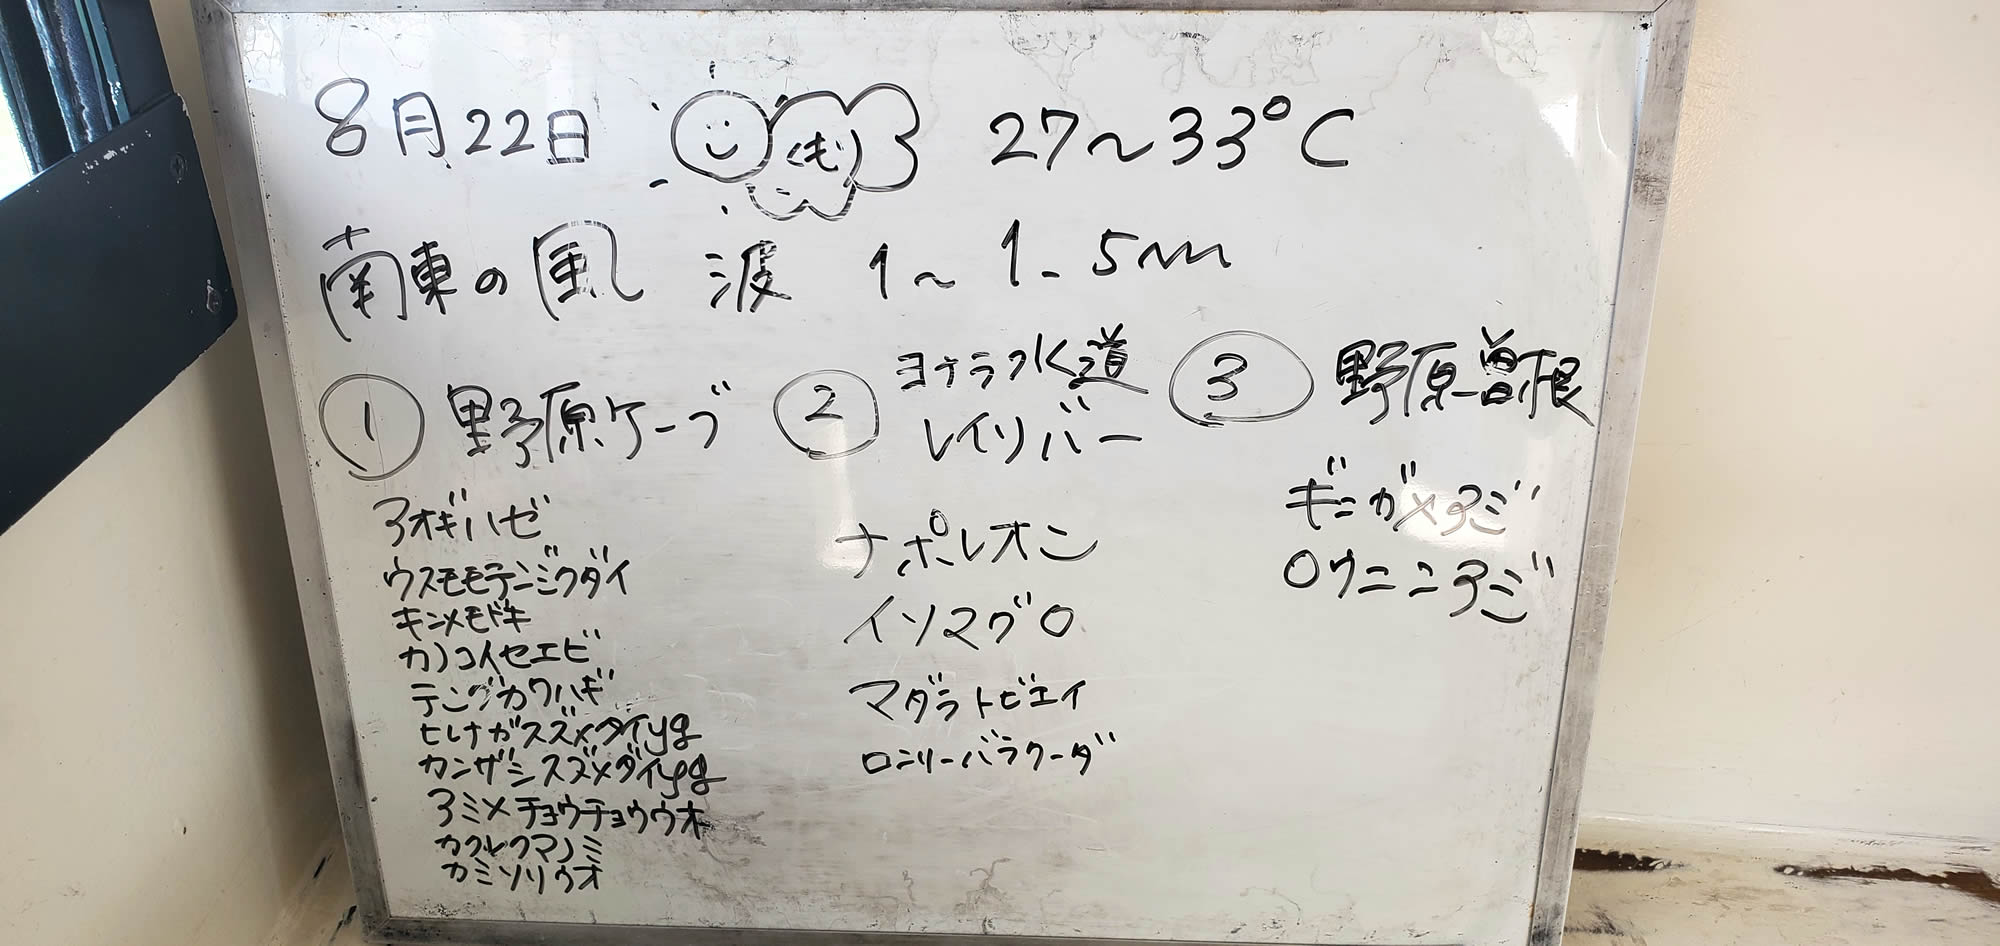 8月22日 くもり 27～33°C
南東の風 波 1～1.5m
① 野原ケーブ
アオギハゼ
ウスモモテンジクダイ
キンメモドキ
カノコイセエビ
テングカワハギ
ヒレナガスズメダイyg
カンザシスズメダイyg
アミメチョウチョウウオ
カクレクマノミ
カミソリウオ
② ヨナラ水道
レイリバー
ナポレオン
イソマグロ
マダラトビエイ
ロンリーバラクーダ
③ 野原曽根
ギンガメアジ
ロウニンアジ